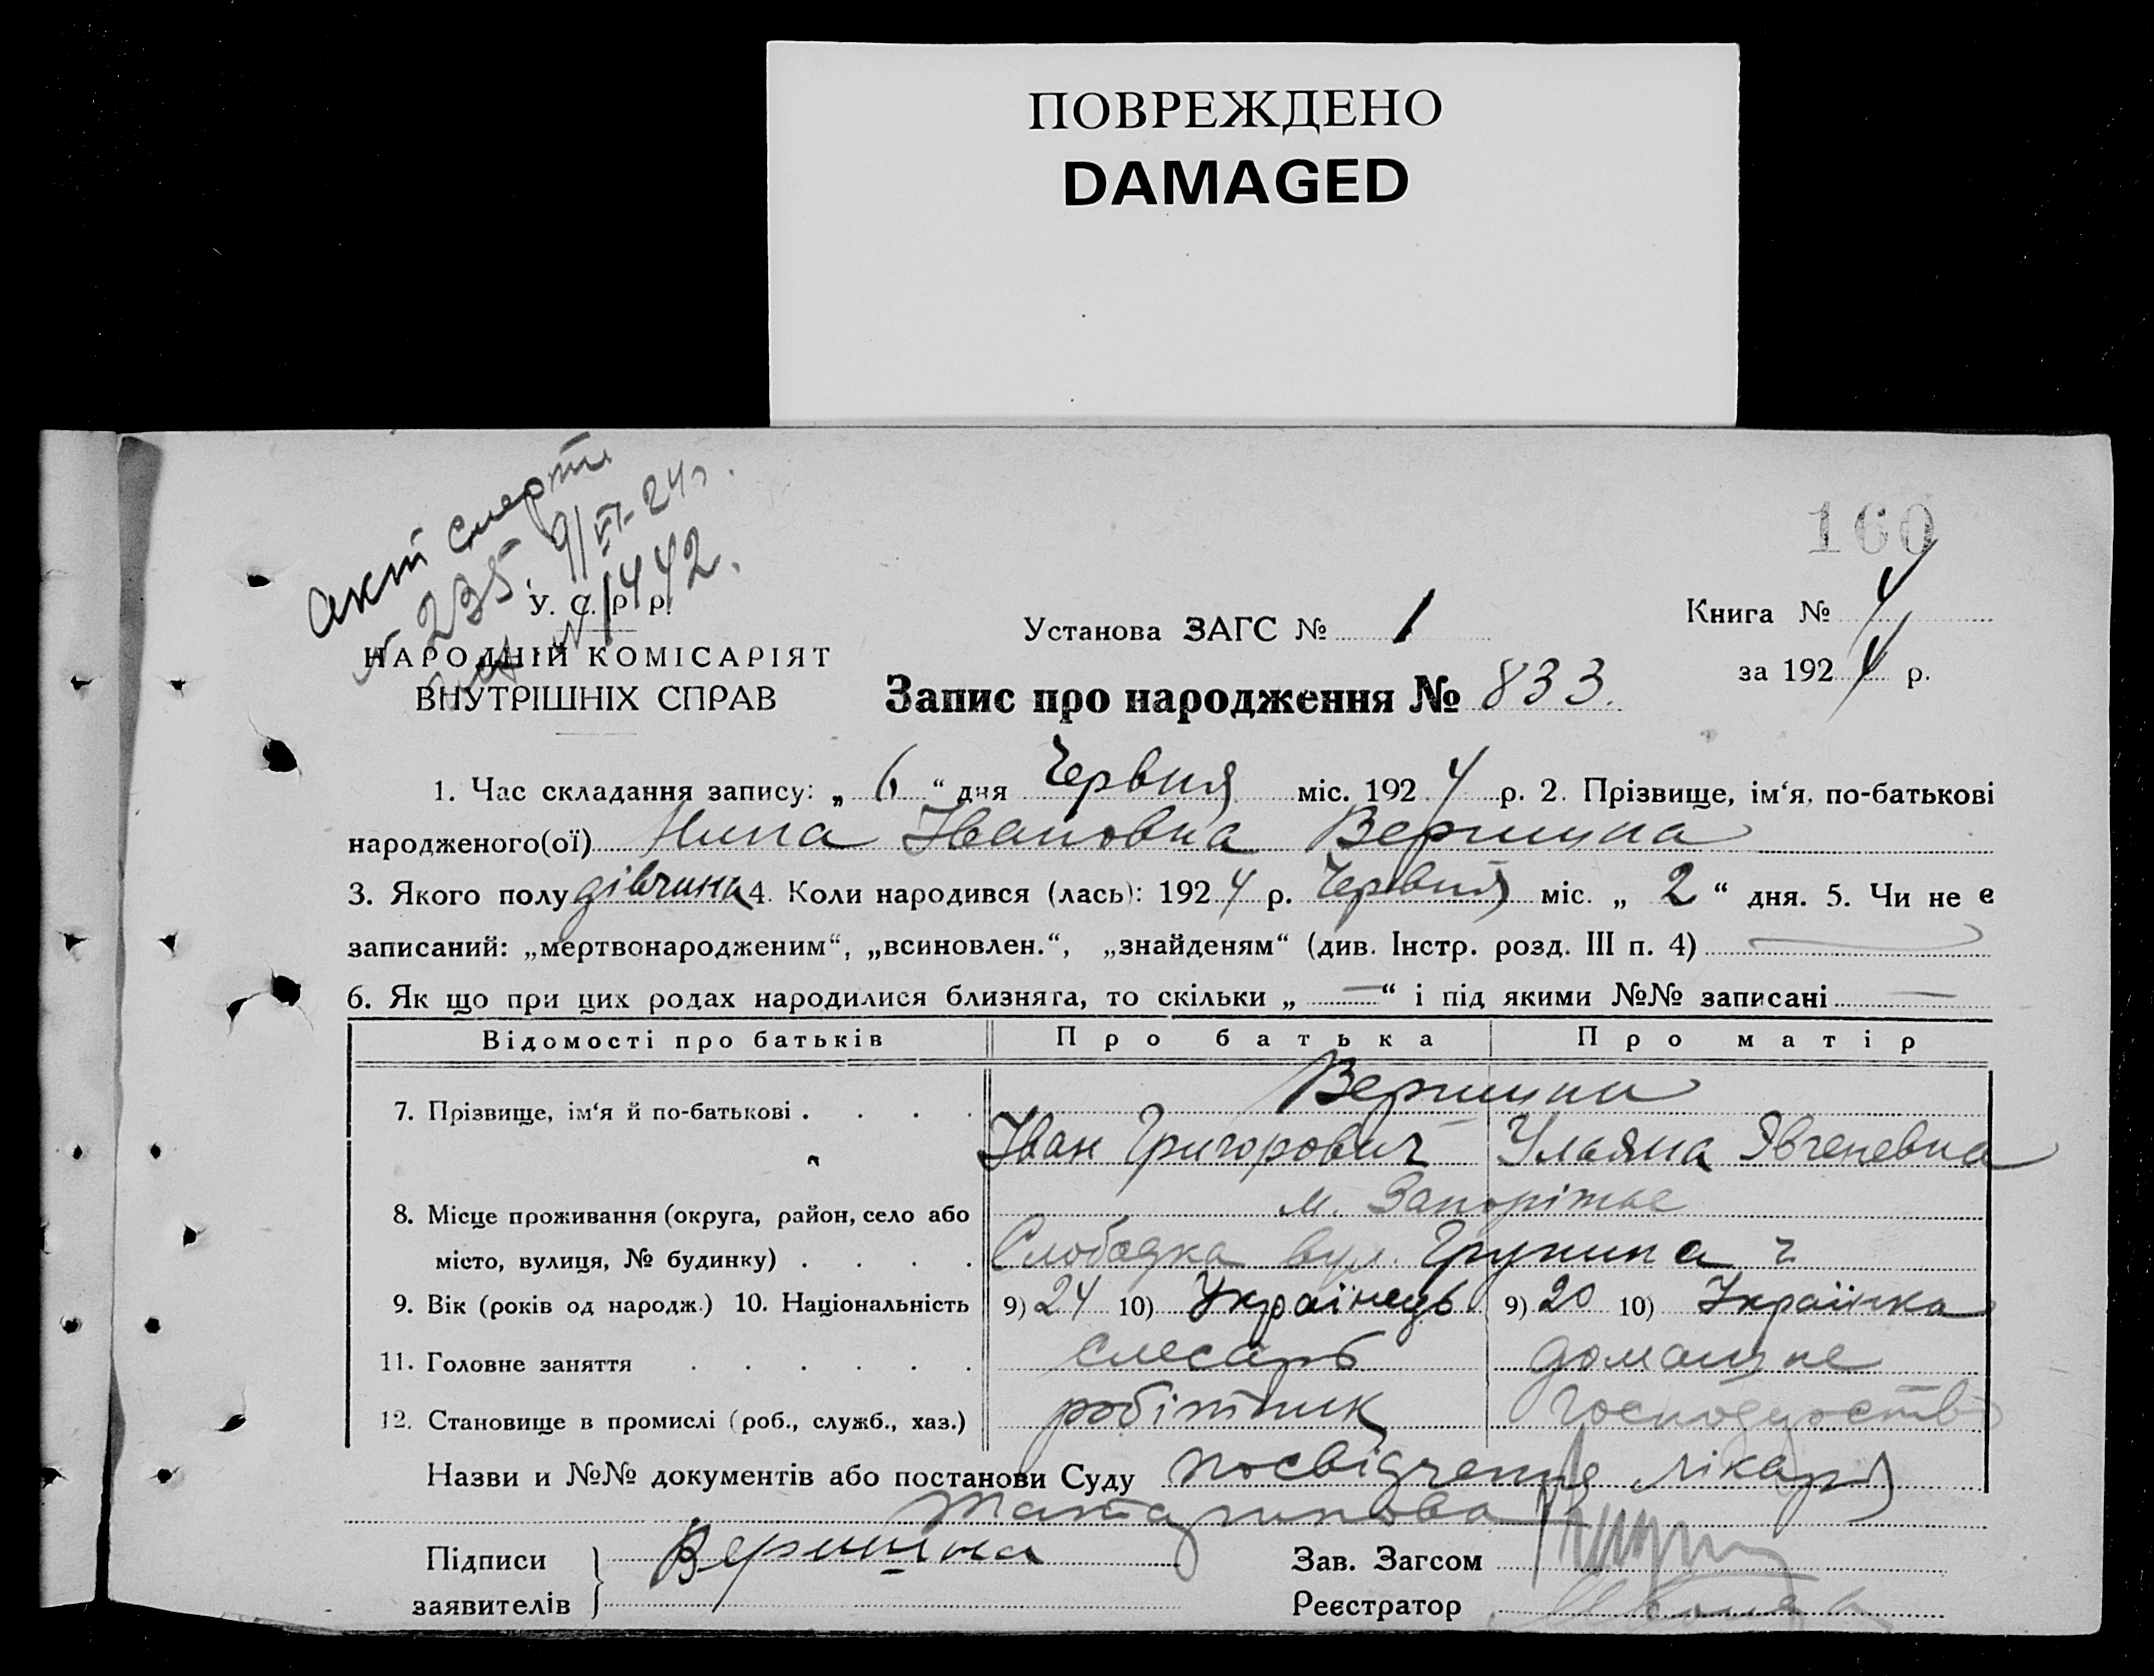 ПОВРЕЖДЕНО
DAMAGED
160
Акт смерти
№ 235. 9/VI-24 г.
N 1442.
У. С. Р. Р.
НАРОДНІЙ КОМІСАРІЯТ
ВНУТРІШНІХ СПРАВ
Установа ЗАГС № 1
Книга № 4
за 1924 р.
Запис про народження № 833.
1. Час складання запису: „ 6 “ дня Червня міс. 1924 р. 2. Прізвище, ім‘я, по-батькові
народженого(ої) Нина Івановна Вершина
3. Якого полу дівчина 4. Коли народився (лась): 1924 р. Червня міс. „ 2 “ дня. 5. Чи не є
записаний: „мертвонародженим“, „всиновлен.“, „знайденям“ (див. Інстр. розд. III п. 4) —
6. Як що при цих родах народилися близняга, то скільки „ — “ і під якими №№ записані —
Відомості про батьків Про батька Про матір
7. Прізвище, ім‘я й по-батькові . . . . Вершини
„ Іван Григорович Ульяна Явгеневна
8. Місце проживання (округа, район, село або м. Запоріжье
місто, вулиця, № будинку) . . . . Слободка вул.
9. Вік (років од народж.) 10. Національність 9) 24 10) Українець 9) 20 10) Українка
11. Головне заняття . . . . . . слесарь домашне
12. Становище в промислі (роб., служб., хаз.) робітник господарство
Назви и №№ документів або постанови Суду посвідчення лікаря
Підписи Вершина Зав. Загсом
заявителів Реєстратор